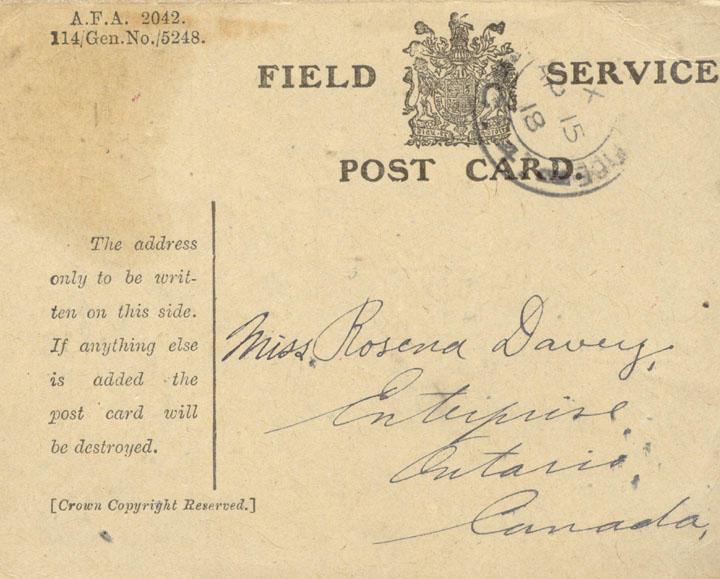 A.F.A. 2042.
114/Gen.No./5248.
FIELD SERVICE
POST CARD.
X
AP 15
18
The address
only to be writ-
ten on this side.
If anything else
is added the
post card will
be destroyed.
[Crown Copyright Reserved.]
Miss Rosena Davey,
Enterprise,
Ontario,
Canada,